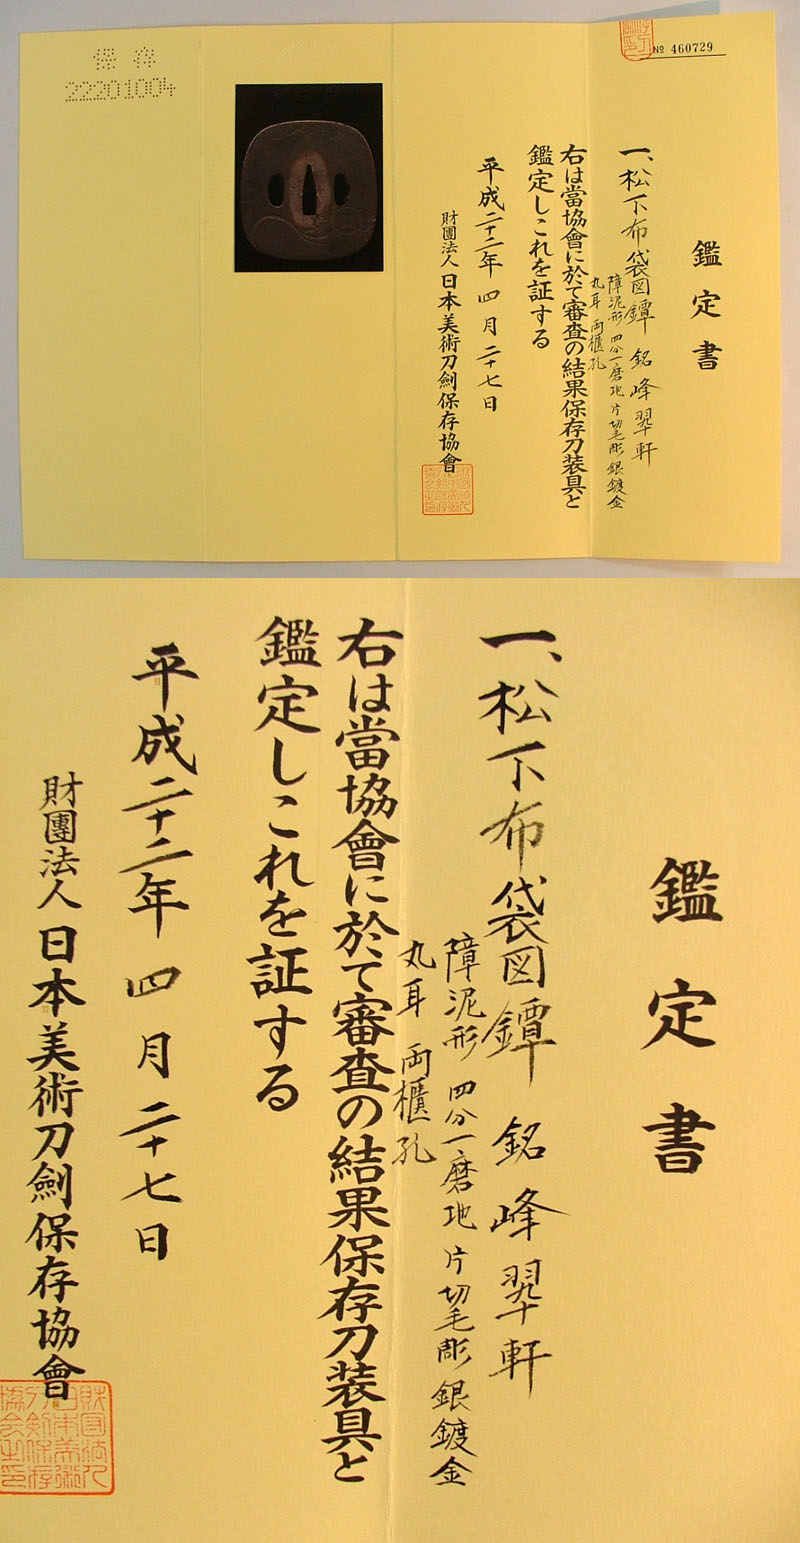 保存
22201004
№ 460729
鑑定書
一、松下布袋図鐔 銘 峰翠軒
障泥形 四分一磨地 片切毛彫 銀鍍金
丸耳 両櫃孔
右は當協會に於て審査の結果保存刀装具と
鑑定しこれを証する
平成二十二年 四月 二十七日
財團法人 日本美術刀劍保存協會
鑑定書
一、松下布袋図鐔 銘 峰翠軒
障泥形 四分一磨地 片切毛彫 銀鍍金
丸耳 両櫃孔
右は當協會に於て審査の結果保存刀装具と
鑑定しこれを証する
平成二十二年 四月 二十七日
財團法人 日本美術刀劍保存協會